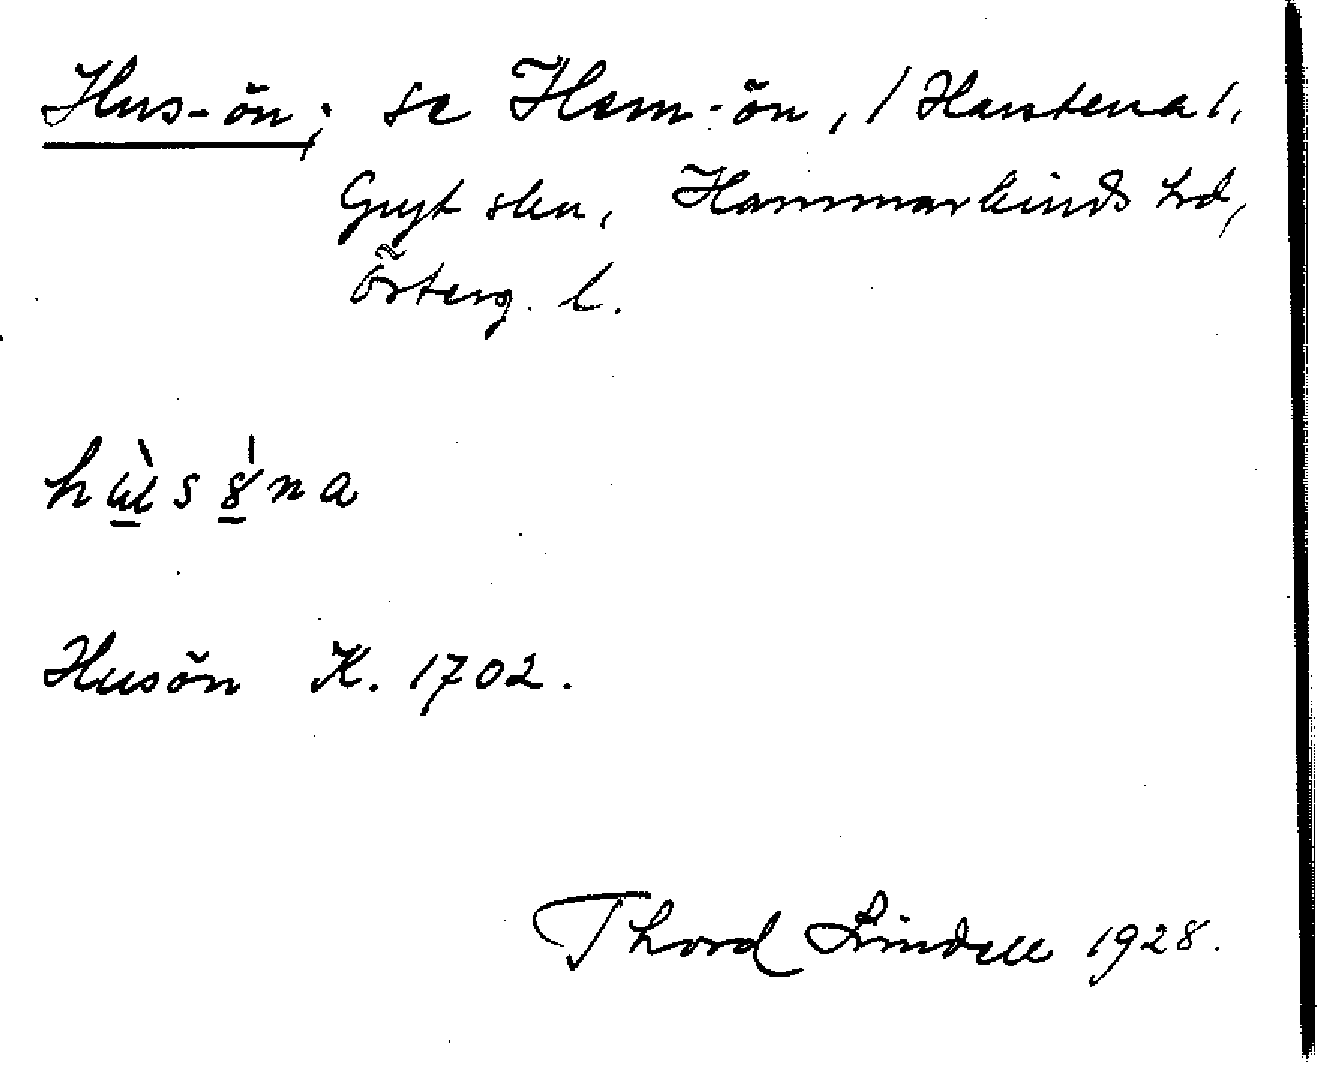 Hus-ön; se Hem-ön, / Harstena /,
Gryt skn, Hammarkinds hd,
Österg. l.
hùsǿna
Husön K. 1702.
Thord Lindell 1928.